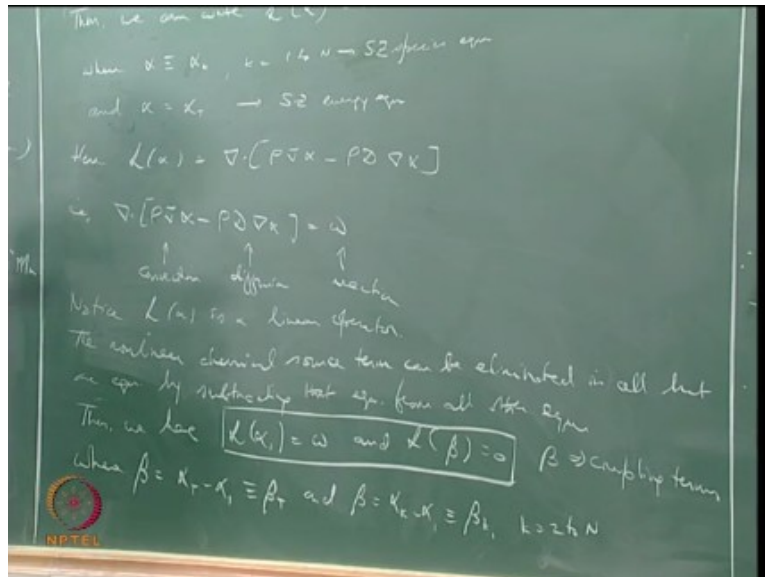 Then, we can write L(α)
where α ≡ αₖ, k = 1 to N → SZ species eqn
and α = α_T → SZ energy eqn
Here L(α) = ∇·[ρv̄α − ρD∇α]
i.e., ∇·[ρv̄α − ρD∇α] = ω
convection diffusion reaction
Notice L(α) is a linear operator.
The nonlinear chemical source term can be eliminated in all but
one eqn by subtracting that eqn. from all other eqns
Then, we have L(α₁) = ω and L(β) = 0 β ⇒ coupling terms
where β = α_T − α₁ ≡ β_T and β = αₖ − α₁ ≡ βₖ, k = 2 to N
NPTEL